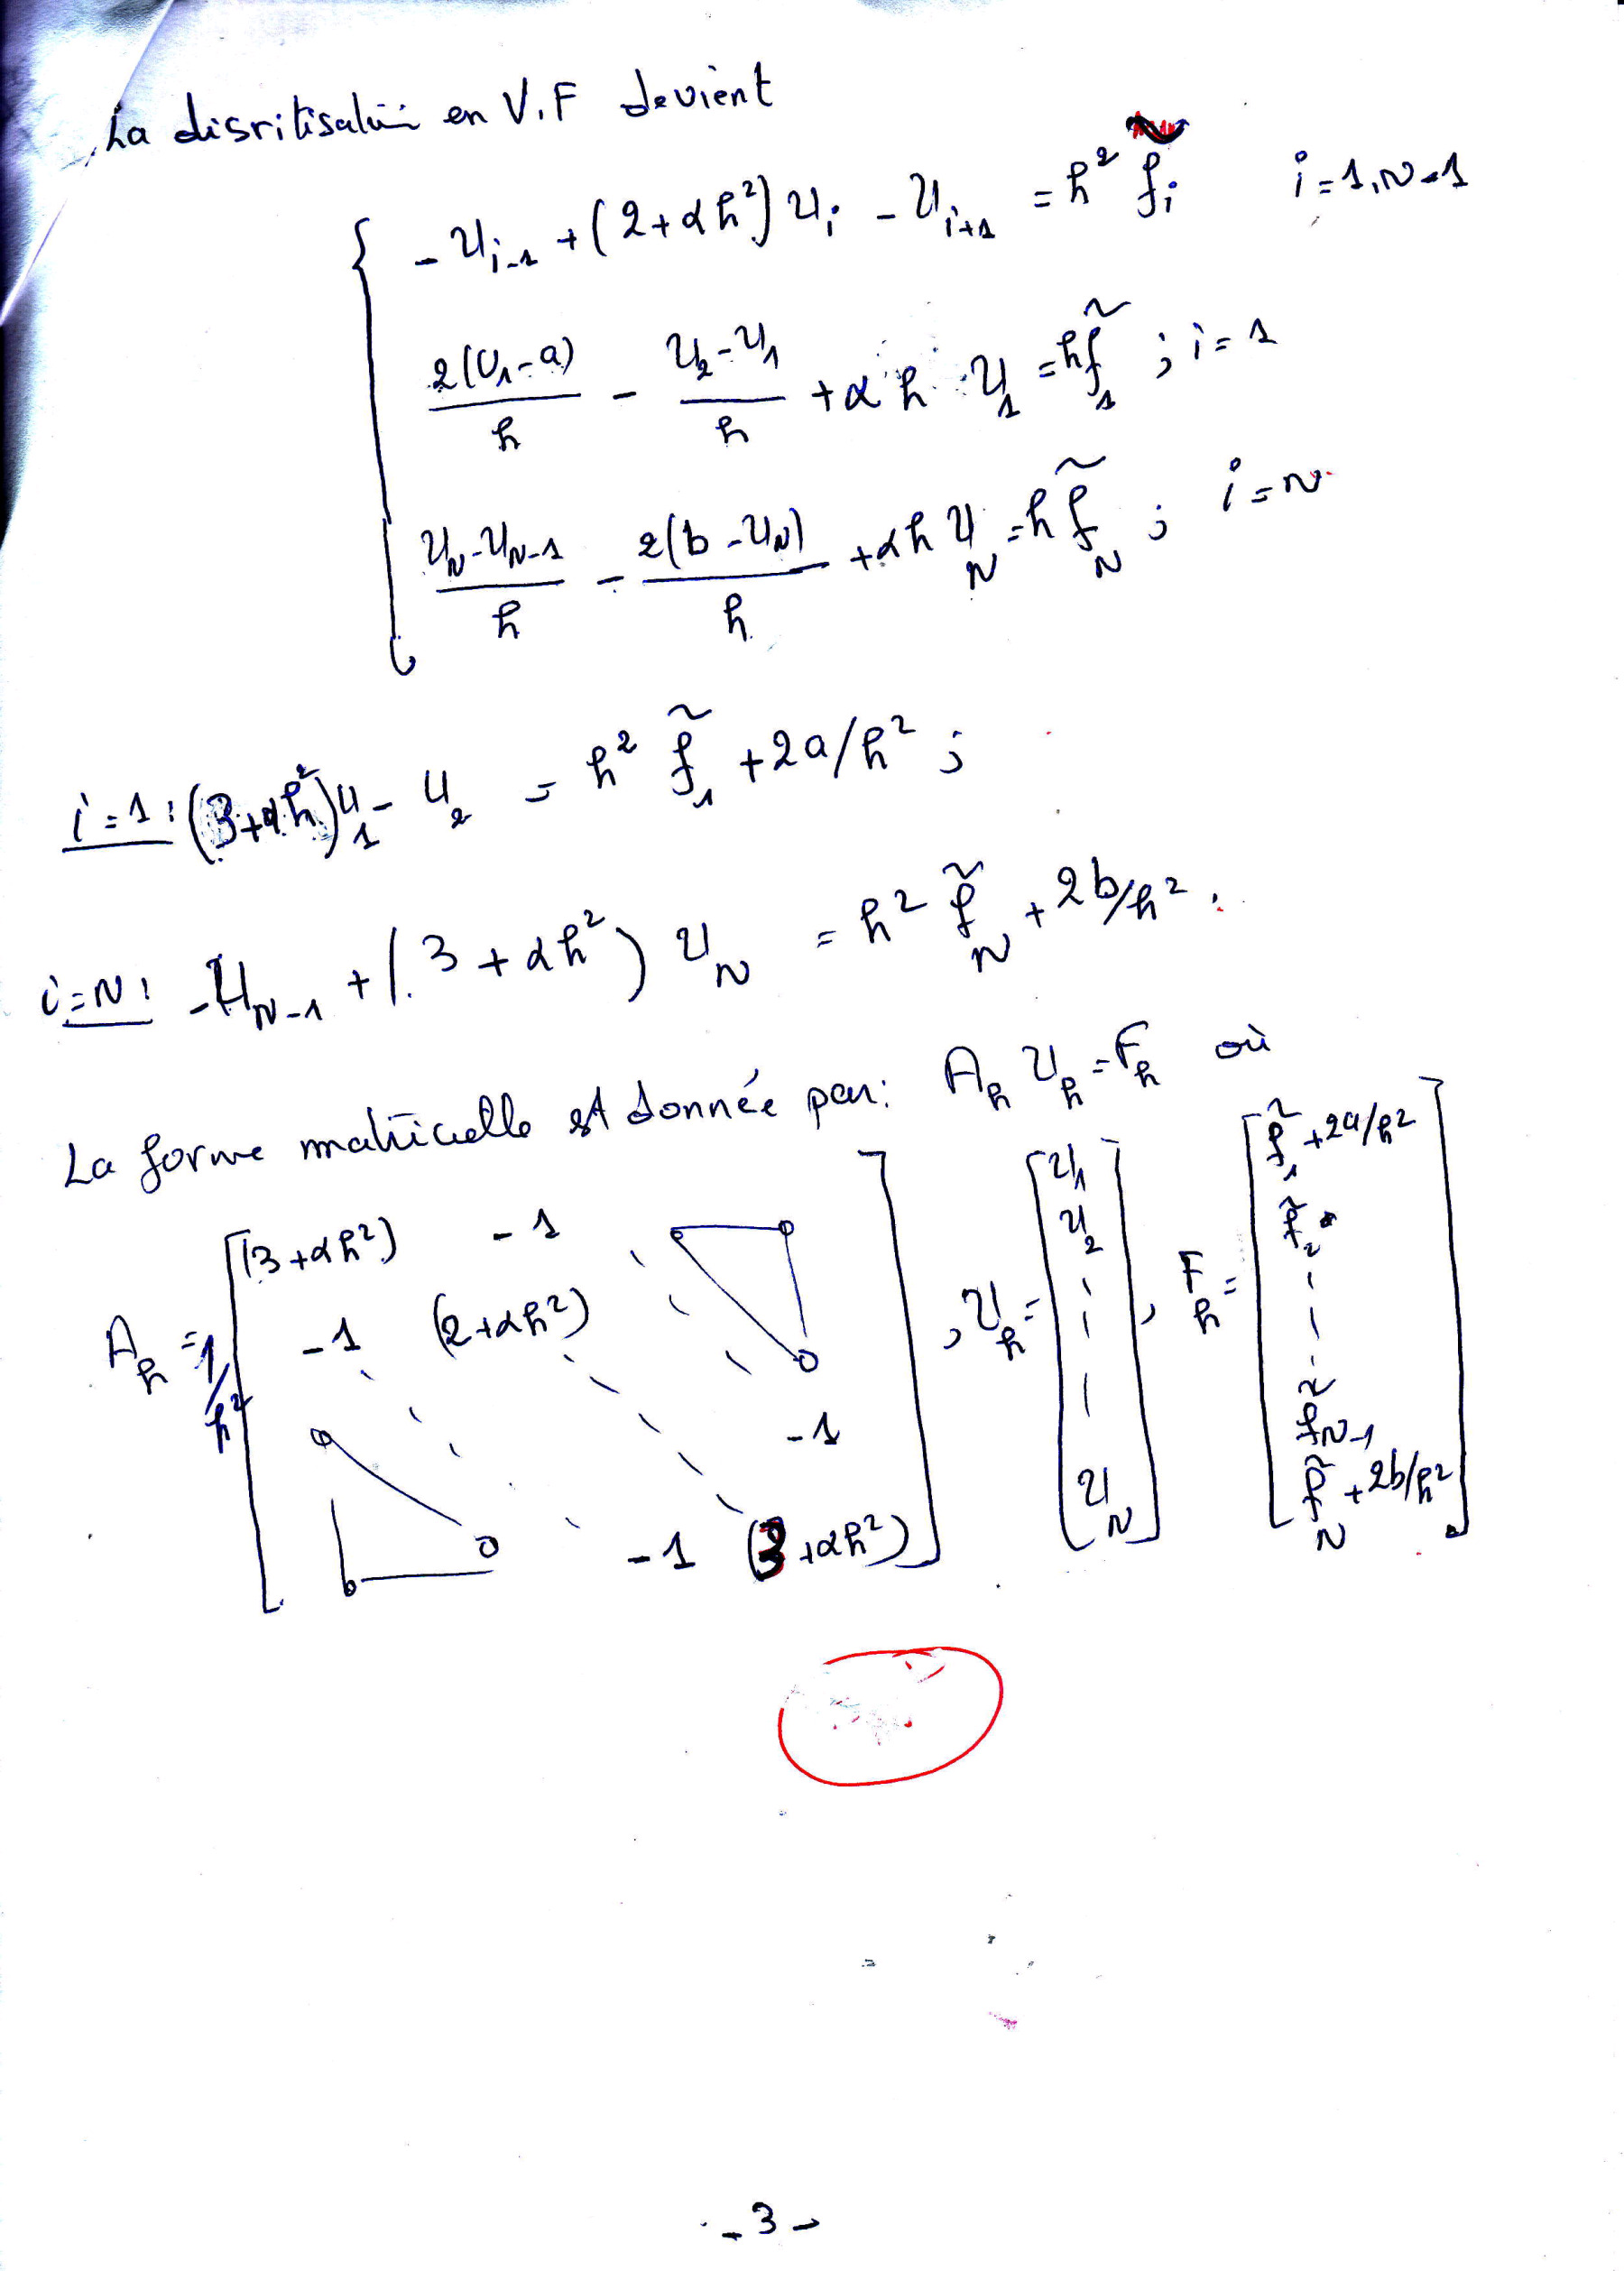 La disritisation en V.F devient
- U_{i-1} + (2 + αh²) U_i - U_{i+1} = h² f̃_i    i = 1, N-1
2(U_1 - a)/h - (U_2 - U_1)/h + αh U_1 = h f̃_1 ; i = 1
(U_N - U_{N-1})/h - 2(b - U_N)/h + αh U_N = h f̃_N ; i = N
i = 1 : (3 + αh²) U_1 - U_2 = h² f̃_1 + 2a/h² ;
i = N : -U_{N-1} + (3 + αh²) U_N = h² f̃_N + 2b/h² .
La forme matricielle est donnée par : A_h U_h = F_h où
A_h = 1/h² [ (3 + αh²) -1 0 0 ; -1 (2 + αh²) 0 ; 0 -1 ; 0 0 -1 (3 + αh²) ] , U_h = [ U_1 U_2 U_N ] , F_h = [ f̃_1 + 2a/h² f̃_2 f̃_{N-1} f̃_N + 2b/h² ]
- 3 -